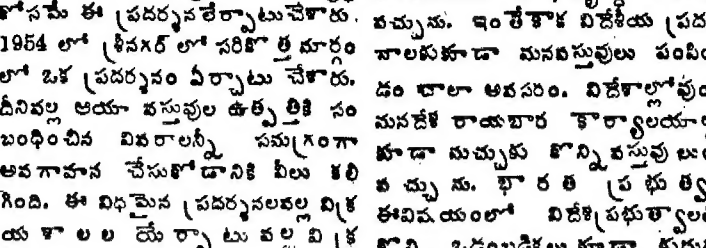 కోసమే ఈ ప్రదర్శనలేర్పాటుచేశారు.
1954 లో శ్రీనగర్ లో సరికొ త్త మార్గం
లో ఒక ప్రదర్శనం ఏర్పాటు చేశారు.
దీనివల్ల ఆయా వస్తువుల ఉత్ప త్తికి సం
బంధించిన వివరాలన్నీ సమగ్రంగా
అవగాహన చేసుకోడానికి వీలు కలి
గింది. ఈ విధమైన ప్రదర్శనలవల్ల విక్ర
య శా ల ల యే ర్పా టు వ ల్ల వి క్ర
వచ్చును. ఇంతేకాక విదేశీయ ప్రద
నాలకుకూడా మనవస్తువులు పంపిం
డం చాలా అవసరం. విదేశాల్లోవుం
మనదేశ రాయబార కార్యాలయా
కూడా మచ్చుకు కొన్ని వస్తువు లు
వ చ్చు ను. భా ర త ప్ర భు త్వ
ఈవిషయంలో విదేశప్రభుత్వాల
కొన్ని ఒడంబడికలు కూడా